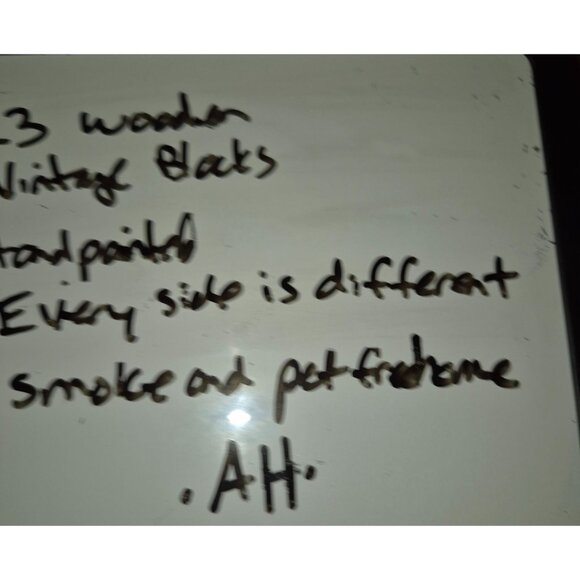 3 wooden
Vintage Blocks
Handpainted
Every side is different
smoke and pet free home
. AH .